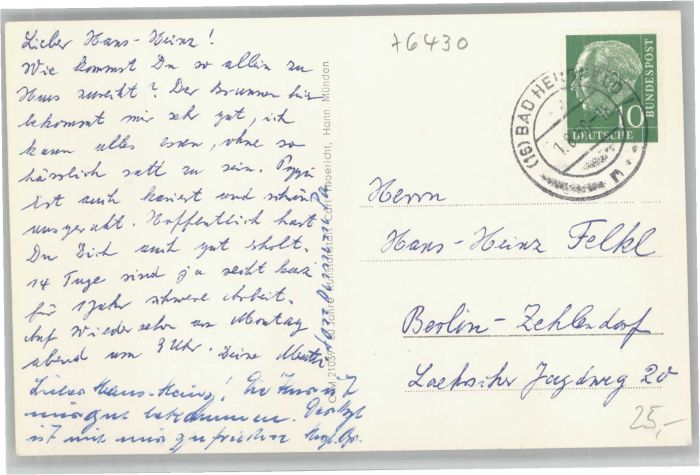 Lieber Hans-Heinz!
Wie kommst Du so allein zu
Haus zurecht? Der Brunnen hier
bekommt mir sehr gut, ich
kann alles essen, ohne so
hässlich satt zu sein. Pappi
ist auch kuriert und schön
ausgeruht. Hoffentlich hast
Du Dich auch gut erholt.
14 Tage sind ja recht kurz
für 1 Jahr schwere Arbeit.
Auf Wiedersehn am Montag
abend um 9 Uhr. Deine Mutti
Lieber Hans-Heinz! Die Kur ist
mir gut bekommen.
ist mit mir zufrieden
76430
(16) BAD HERSFELD
10
DEUTSCHE
BUNDESPOST
Herrn
Hans-Heinz Felkl
Berlin-Zehlendorf
Jagdweg 20
25,-
Hann. Münden